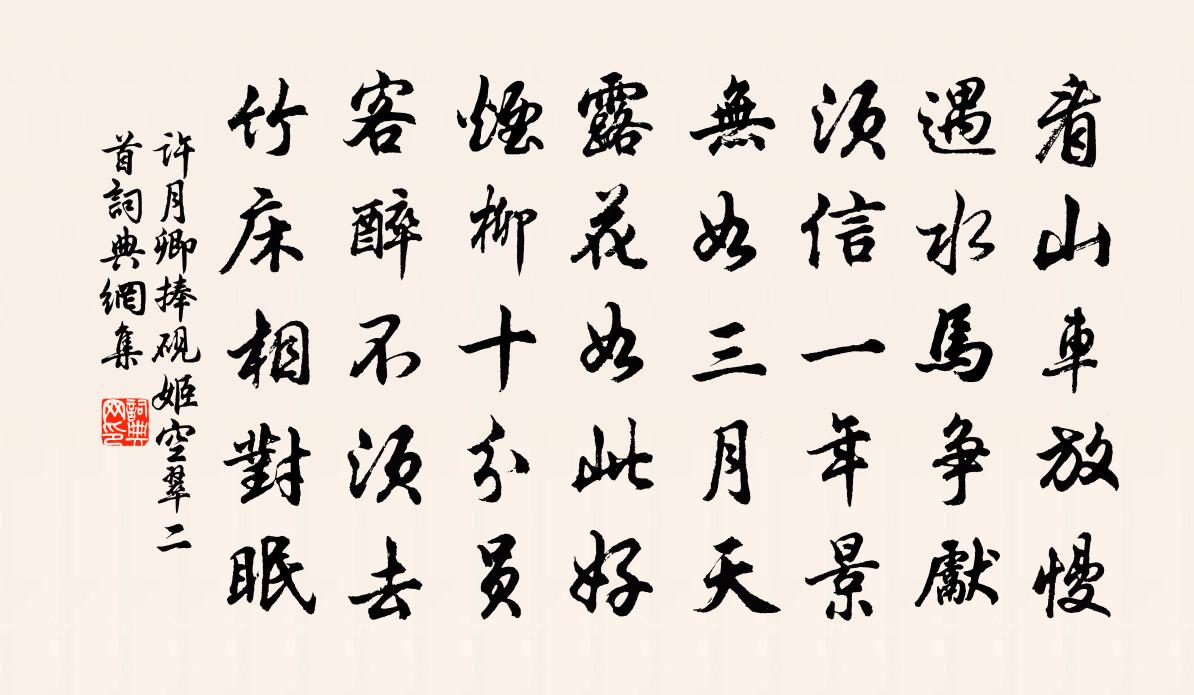 看山車放慢
遇水馬爭獻
須信一年景
無如三月天
露花如此好
煙柳十分員
客醉不須去
竹床相對眠
許月卿捧硯姬空翠二
首詞典網集
詞典
网印